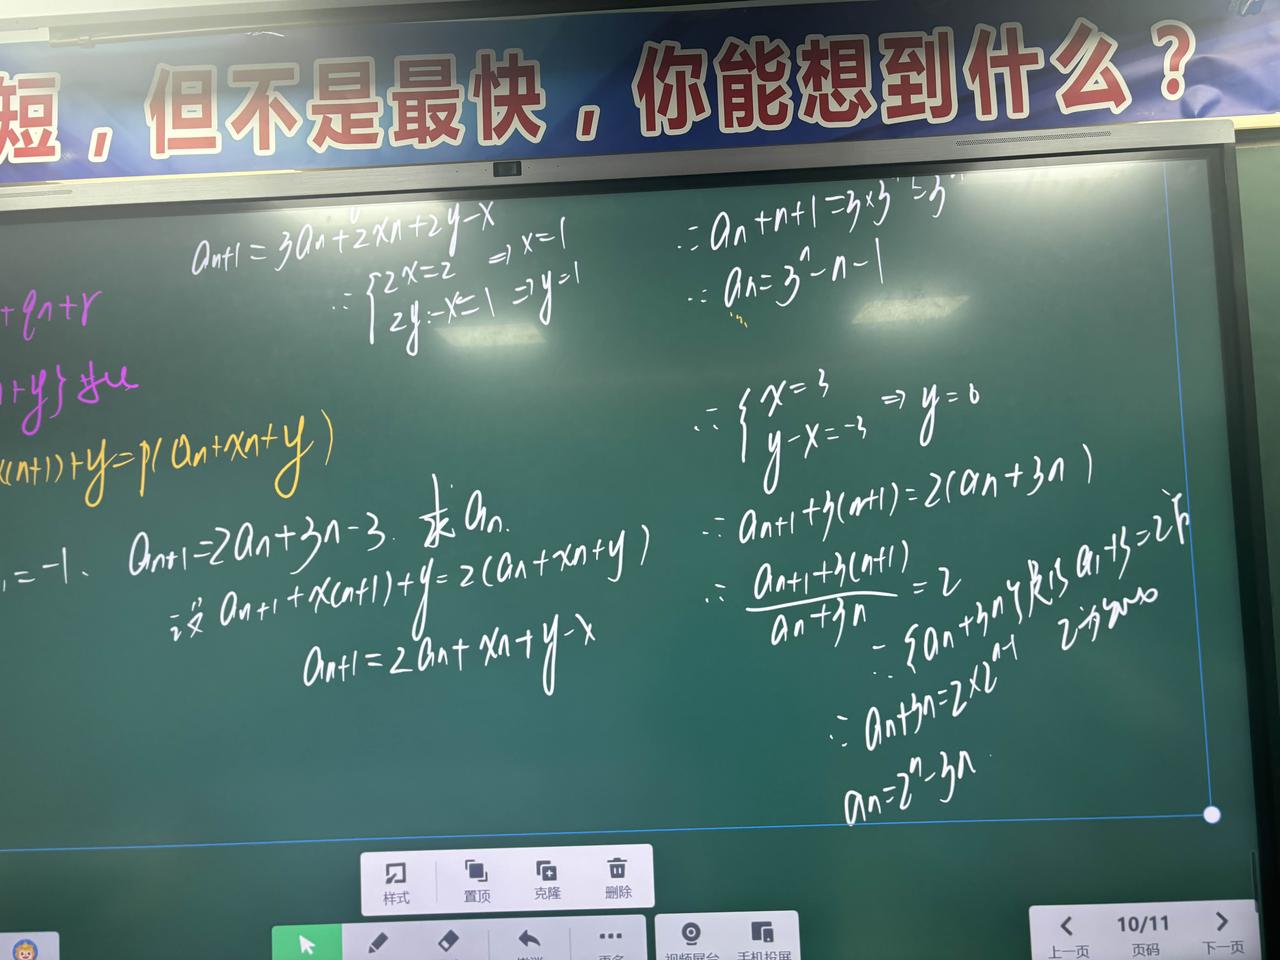 短，但不是最快，你能想到什么？
aₙ₊₁=3aₙ+2xn+2y-x
∴ {2x=2 ⇒ x=1
2y-x=1 ⇒ y=1
∴ aₙ+n+1=3×3
∴ aₙ=3ⁿ-n-1
+qn+r
+y}
(n+1)+y=p(aₙ+xn+y)
=-1、aₙ₊₁=2aₙ+3n-3. 求aₙ.
设 aₙ₊₁+x(n+1)+y=2(aₙ+xn+y)
aₙ₊₁=2aₙ+xn+y-x
∴ {x=3
y-x=-3 ⇒ y=0
∴ aₙ₊₁+3(n+1)=2(aₙ+3n)
∴ (aₙ₊₁+3(n+1))/(aₙ+3n)=2
∴ {aₙ+3n}是以a₁+3=2下
2为
∴ aₙ+3n=2×2ⁿ⁻¹
aₙ=2ⁿ-3n
样式 置顶 克隆 删除
视频展台 手机投屏
上一页 10/11 页码 下一页